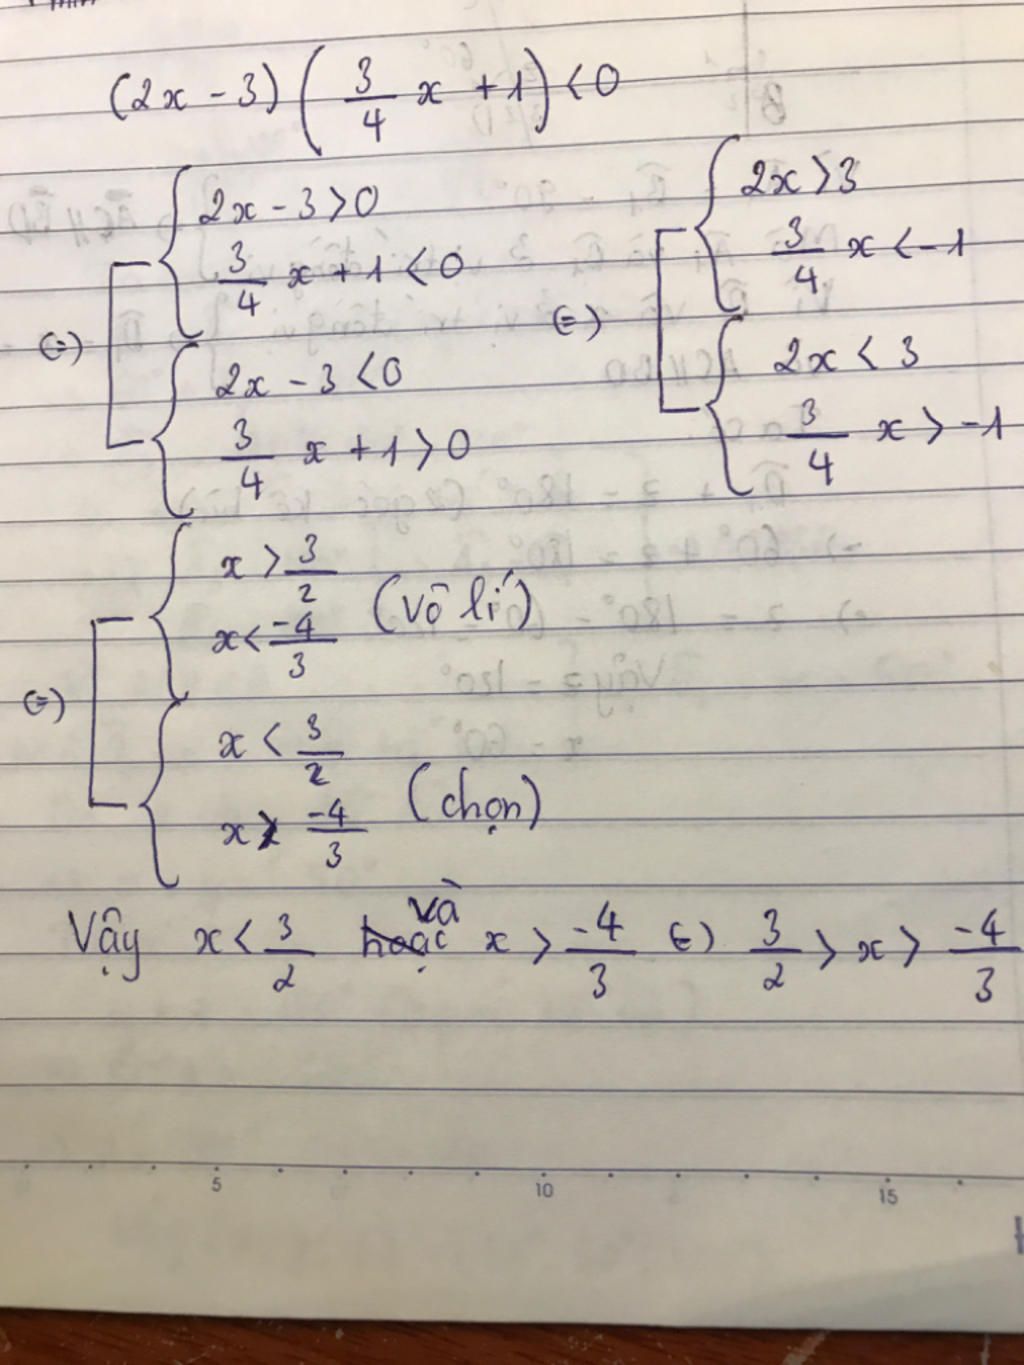 (2x - 3) ( 3/4 x + 1 ) < 0
2x - 3 > 0
3/4 x + 1 < 0
(=)
2x - 3 < 0
3/4 x + 1 > 0
2x > 3
3/4 x < -1
(=)
2x < 3
3/4 x > -1
x > 3/2
x < -4/3 (Vô lí)
(=)
x < 3/2
x > -4/3 (chọn)
Vậy x < 3/2 và x > -4/3 (=) 3/2 > x > -4/3
5 10 15